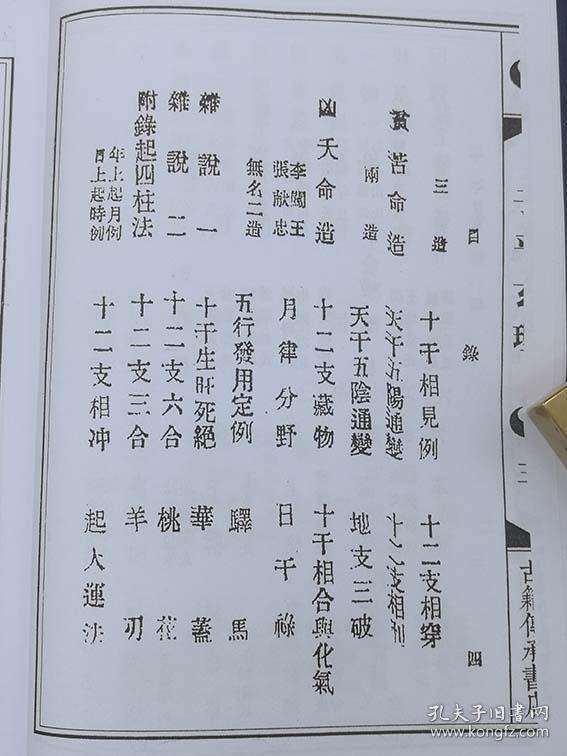 目錄 四
三造
貧苦命造
兩造
凶夭命造
李闖王
張献忠
無名二造
雜說一
雜說二
附錄起四柱法
年上起月例
日上起時例
十干相見例
天干五陽通變
天干五陰通變
十二支藏物
月律分野
五行發用定例
十干生旺死絕
十二支六合
十二支三合
十二支相冲
十二支相穿
十二支相刑
地支三破
十干相合與化氣
日干祿
驛馬
華蓋
桃花
羊刃
起大運法
三
古籍傳承書店
孔夫子旧书网
www.kongfz.com